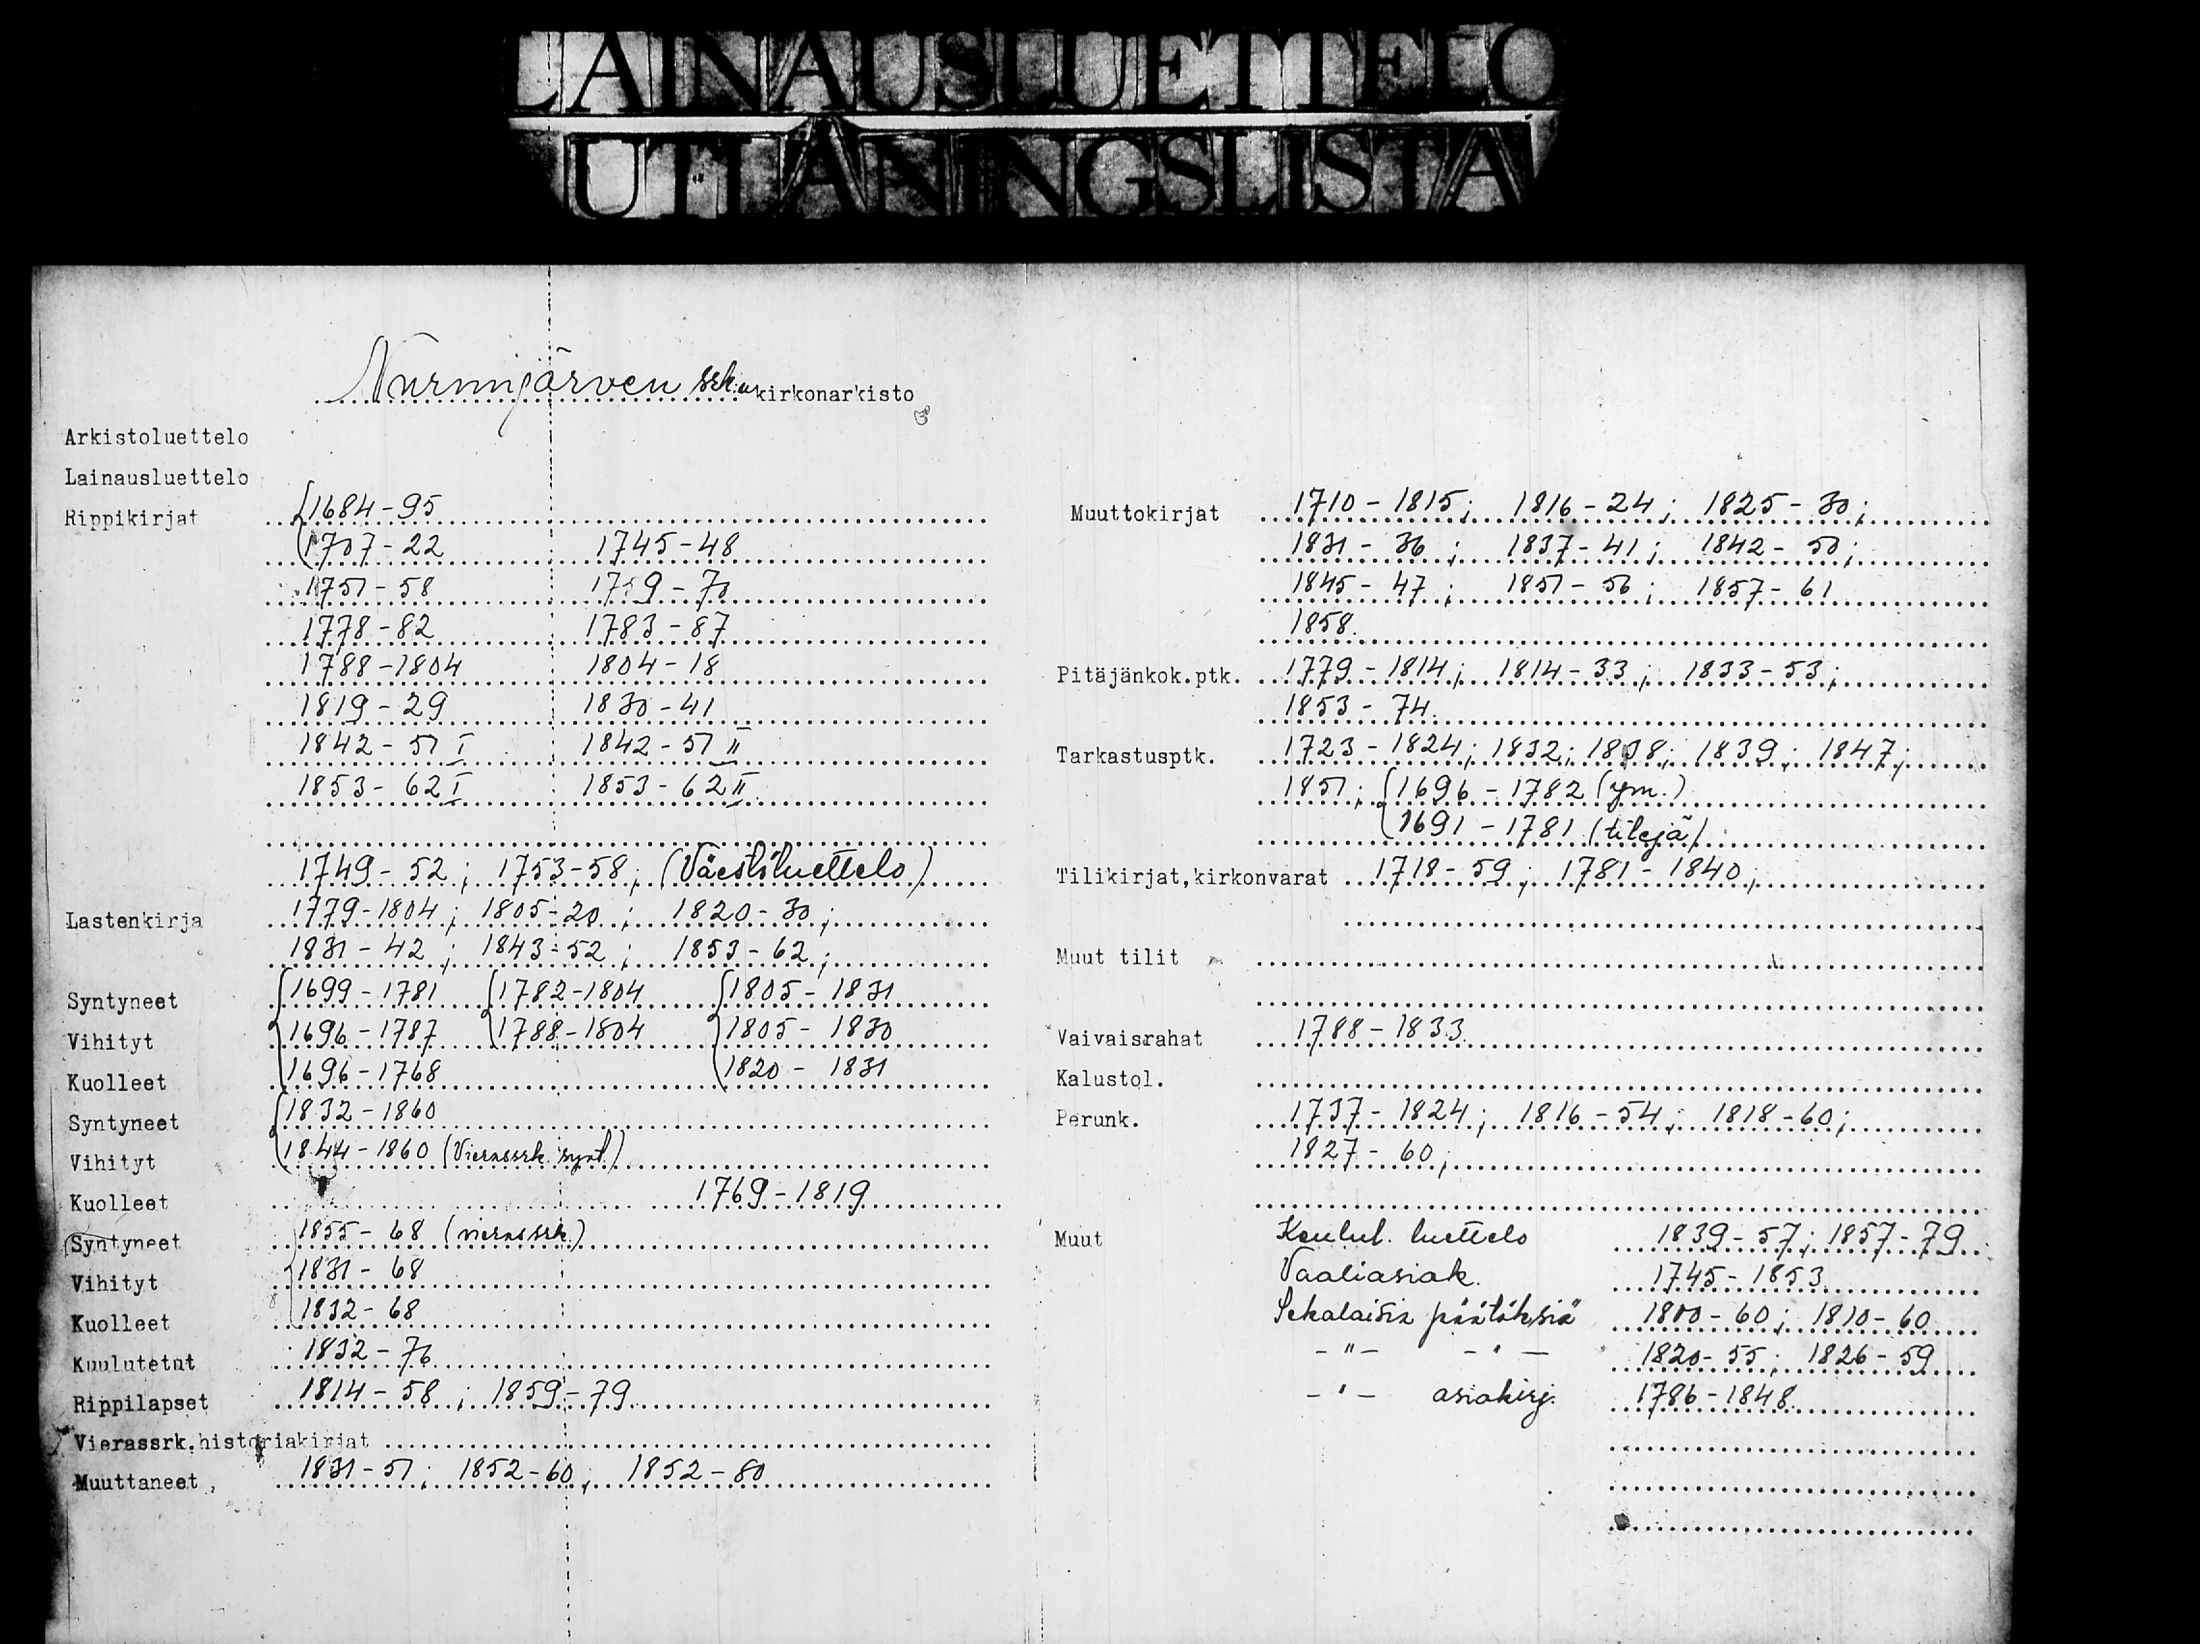 LAINAUSLUETTELO
UTLÅNINGSLISTA
Nurmijärven srk:n kirkonarkisto
Arkistoluettelo
Lainausluettelo
Rippikirjat 1684-95
1707-22 1745-48
1751-58 1759-70
1778-82 1783-87
1788-1804 1804-18
1819-29 1830-41
1842-51 I 1842-51 II
1853-62 I 1853-62 II
1749-52; 1753-58; (Väestöluettelo)
Lastenkirja 1779-1804; 1805-20; 1820-30;
1831-42; 1843-52; 1853-62;
Syntyneet 1699-1781 1782-1804 1805-1831
Vihityt 1696-1787 1788-1804 1805-1830
Kuolleet 1696-1768 1820-1831
Syntyneet 1832-1860
Vihityt 1844-1860 (Vierassrk. synt.)
Kuolleet 1769-1819
Syntyneet 1855-68 (vierassrk.)
Vihityt 1831-68
Kuolleet 1832-68
Kuulutetut 1832-76
Rippilapset 1814-58; 1859-79
Vierassrk.historiakirjat
Muuttaneet 1831-51; 1852-60; 1852-80
Muuttokirjat 1710-1815; 1816-24; 1825-30;
1831-36; 1837-41; 1842-50;
1845-47; 1851-56; 1857-61
1858.
Pitäjänkok.ptk. 1779-1814; 1814-33; 1833-53;
1853-74.
Tarkastusptk. 1723-1824; 1832; 1838; 1839; 1847;
1851; 1696-1782 (ym.)
1691-1781 (tilejä)
Tilikirjat,kirkonvarat 1718-59; 1781-1840;
Muut tilit
Vaivaisrahat 1788-1833
Kalustol.
Perunk. 1737-1824; 1816-54; 1818-60;
1827-60;
Muut Kuulut. luettelo 1839-57; 1857-79
Vaaliasiak. 1745-1853
Sekalaisia päätöksiä 1800-60; 1810-60
-"- -"- 1820-55; 1826-59
-"- asiakirj. 1786-1848